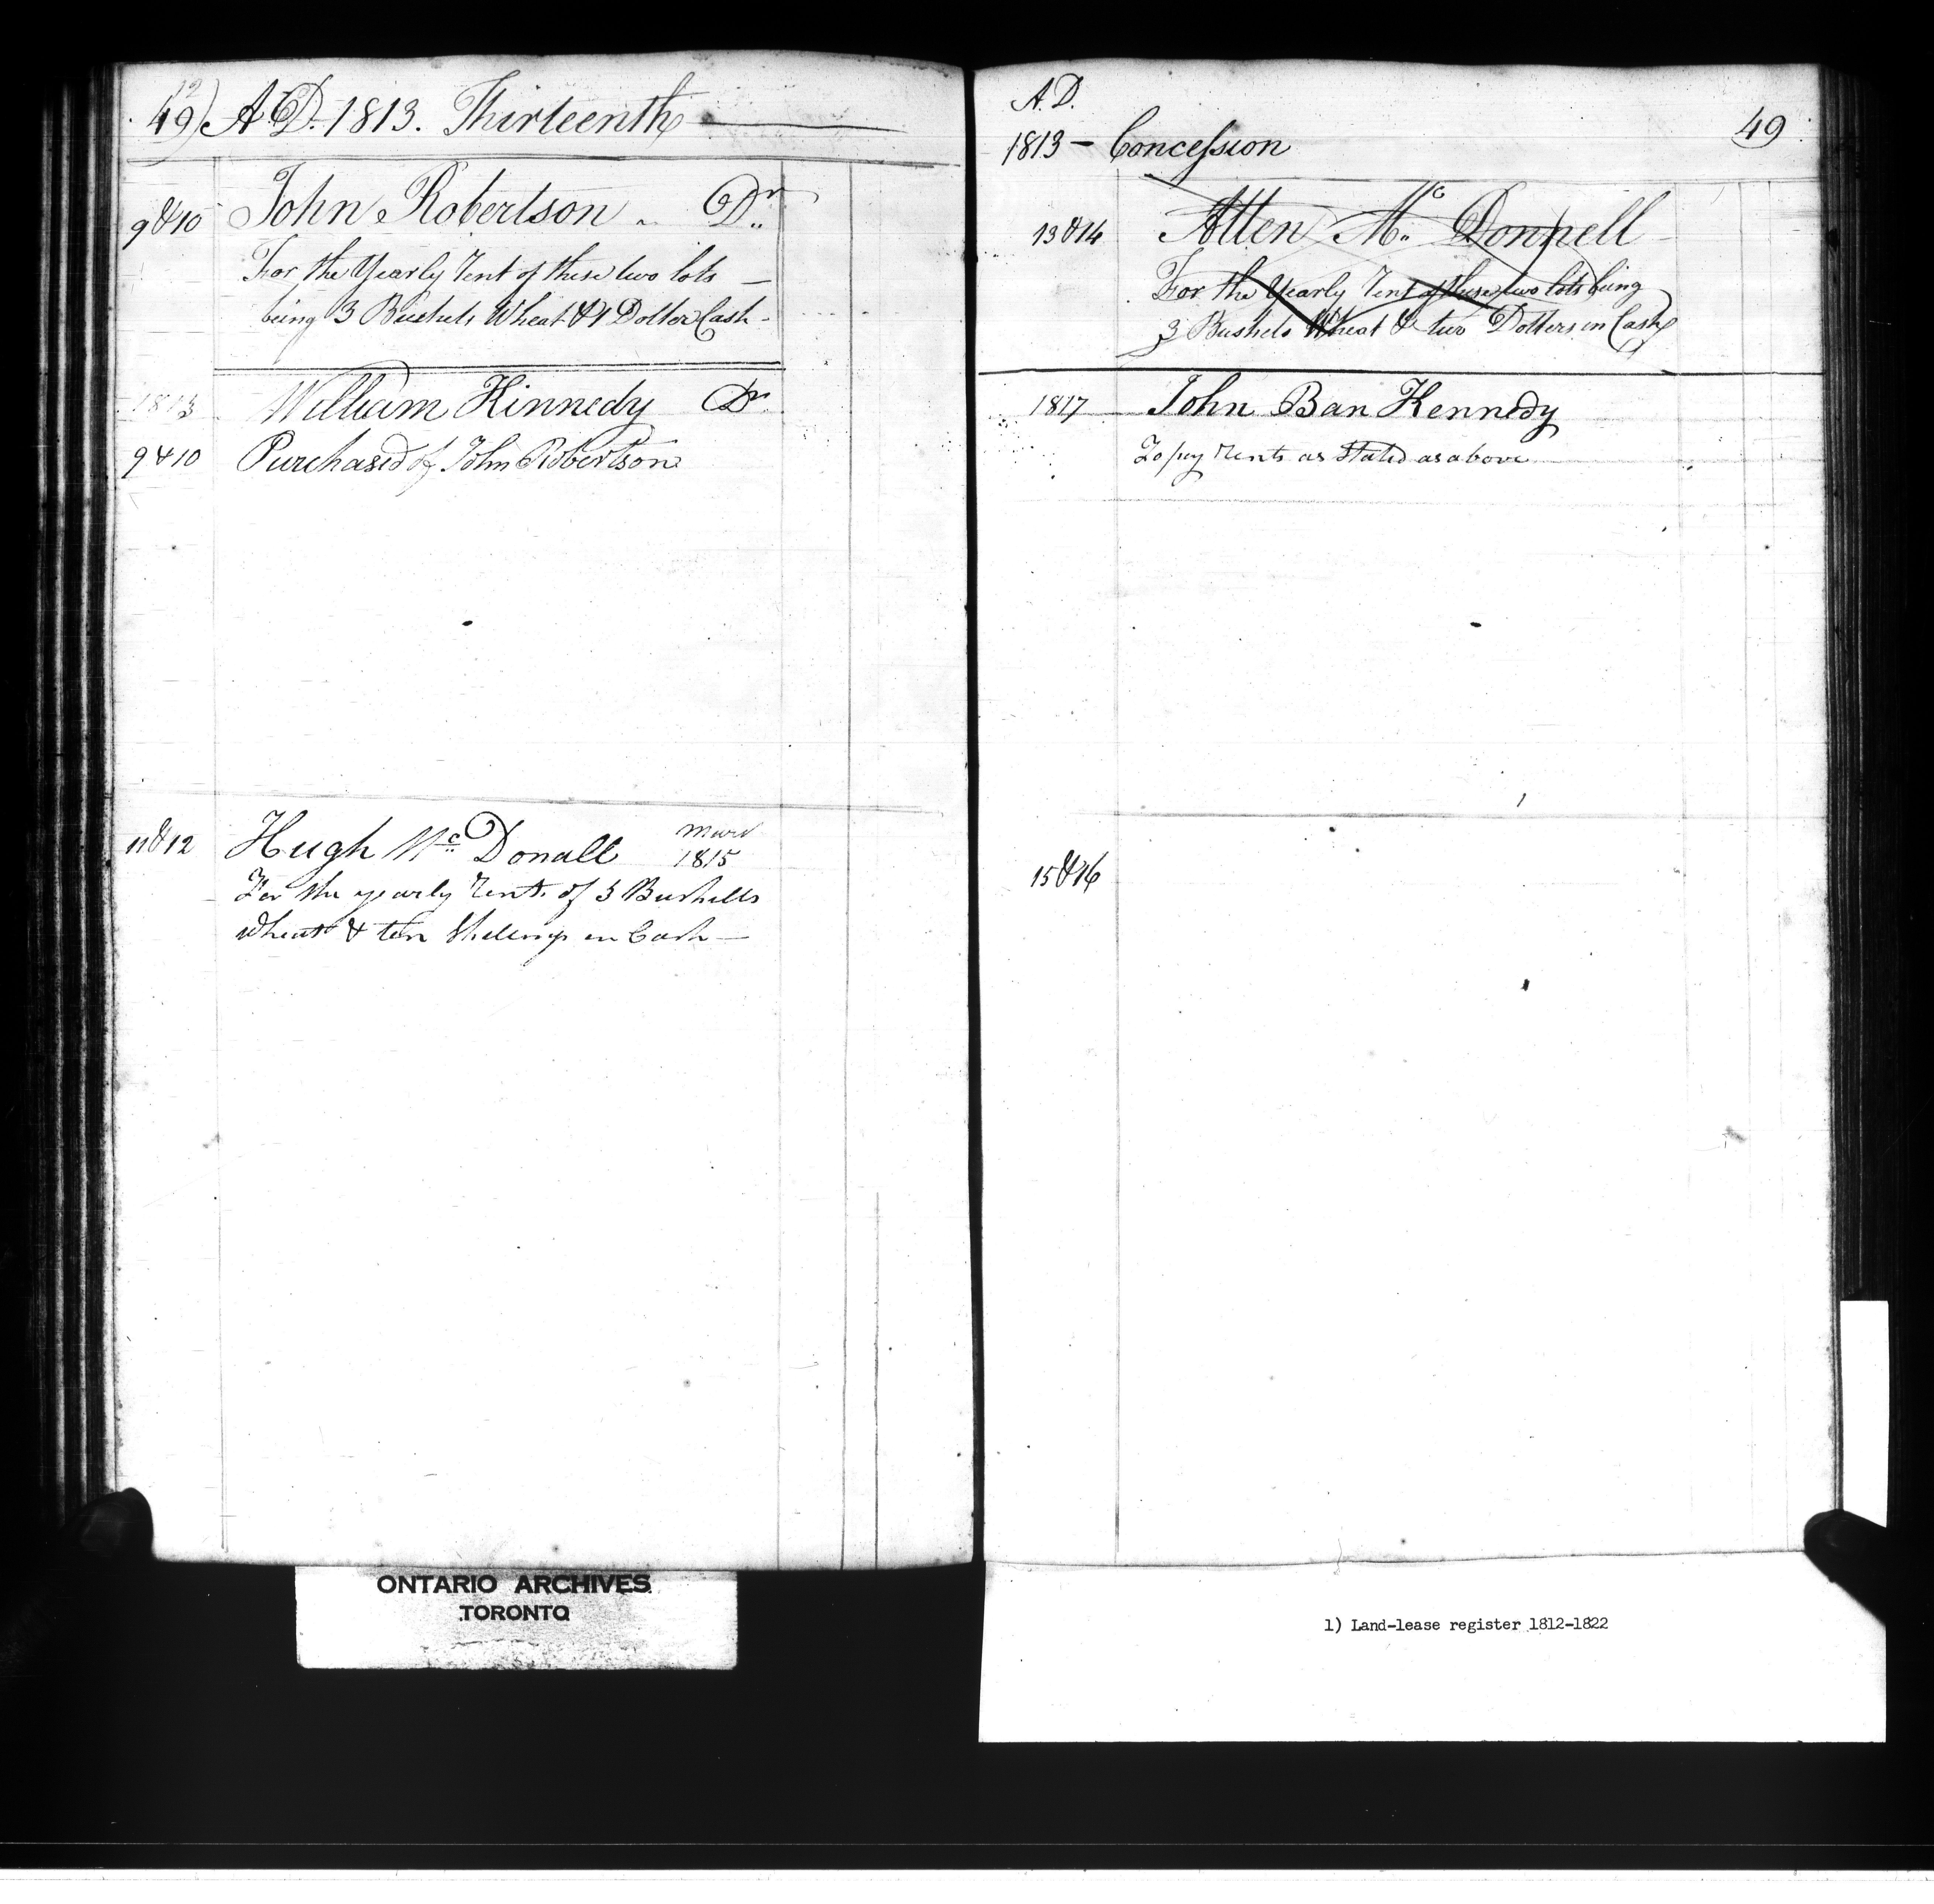 49) A.D. 1813. Thirteenth
9 & 10 John Robertson Dr
For the Yearly Rent of these two lots
being 3 Bushels Wheat & 1 Doller Cash
1813 William Kinnedy Dr
9 & 10 Purchased of John Robertson
11 & 12 Hugh Mc Donall
1815
For the yearly Rents of 3 Bushells
wheat & ten Shillings in Cash
A.D.
1813 - Concession 49
13 & 14 Allen Mc Donnell
For the Yearly Rent of these two lots being
3 Bushels Wheat & two Dollers in Cash
1817 John Ban Kennedy
To pay Rents as Stated as above
15 & 16
ONTARIO ARCHIVES
TORONTO
1) Land-lease register 1812-1822